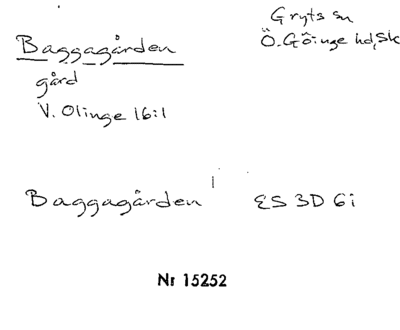 Baggagården
gård
V. Olinge 16:1
Gryts sn
Ö. Göinge hd, Sk
Baggagården ES 3D 6i
Nr 15252